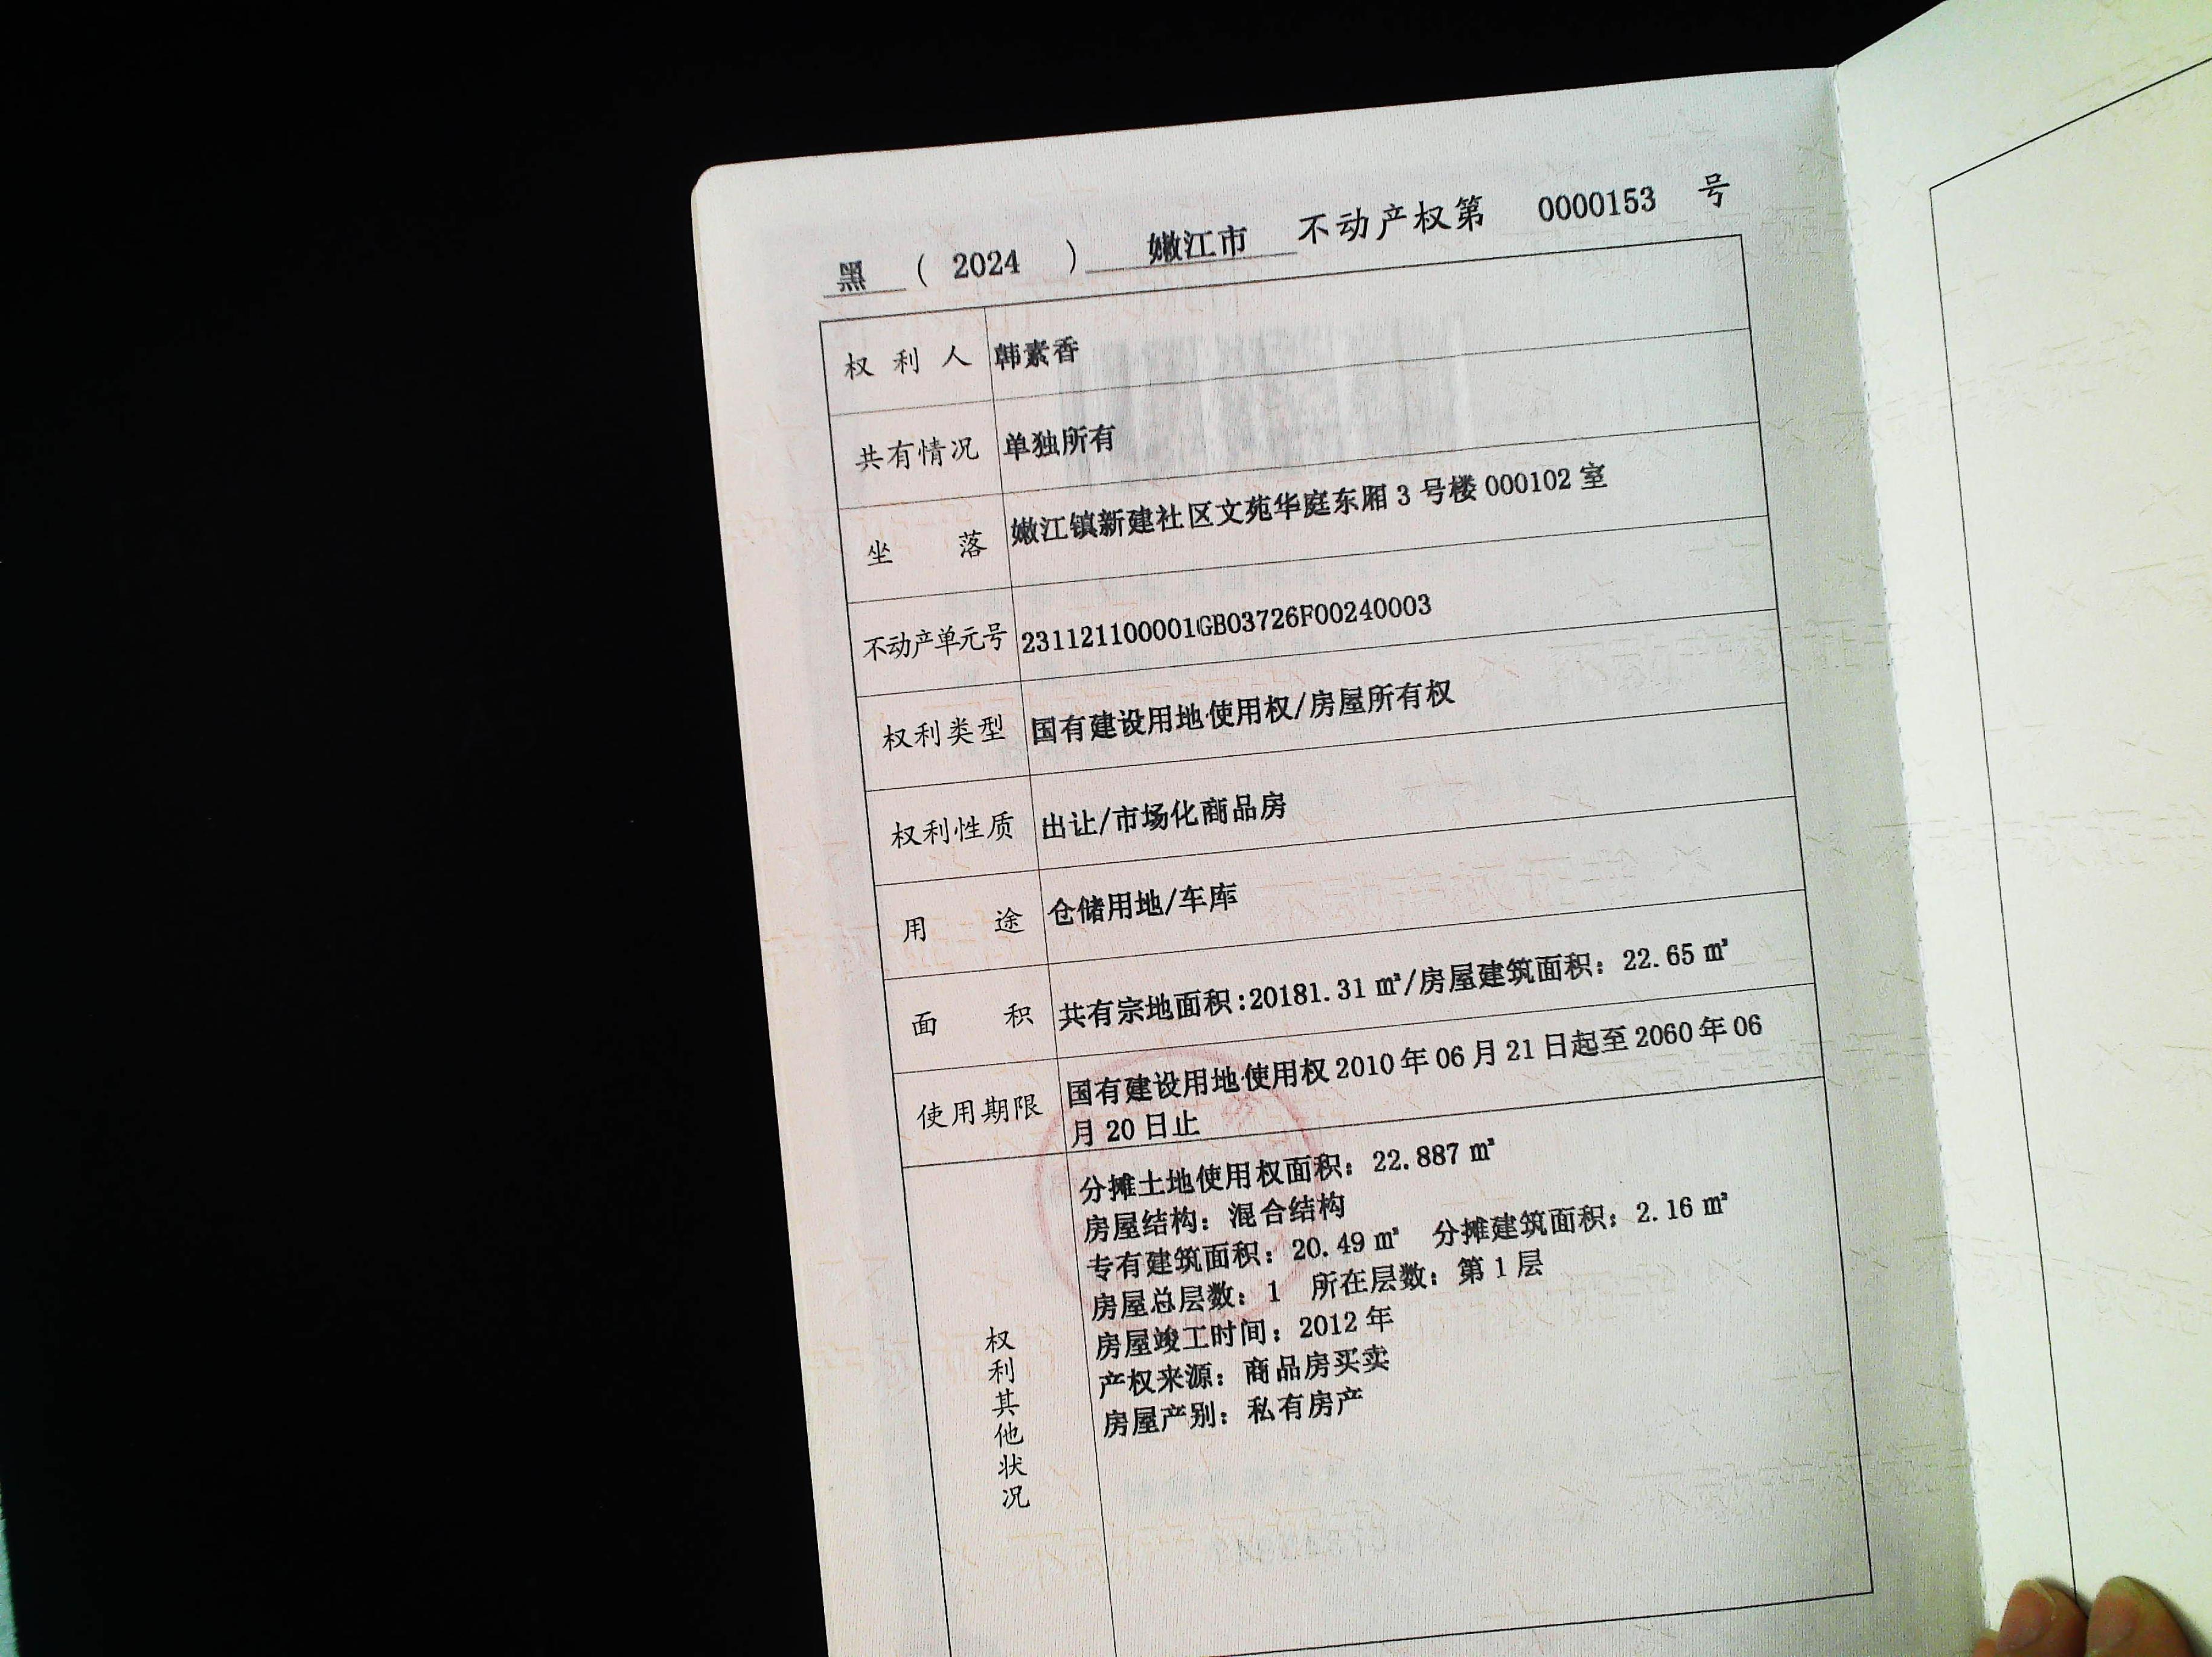 黑 ( 2024 ) 嫩江市 不动产权第 0000153 号
权利人 韩素香
共有情况 单独所有
坐落 嫩江镇新建社区文苑华庭东厢3号楼000102室
不动产单元号 231121100001GB03726F00240003
权利类型 国有建设用地使用权/房屋所有权
权利性质 出让/市场化商品房
用途 仓储用地/车库
面积 共有宗地面积:20181.31㎡/房屋建筑面积：22.65㎡
使用期限 国有建设用地使用权2010年06月21日起至2060年06
月20日止
权利其他状况
分摊土地使用权面积：22.887㎡
房屋结构：混合结构
专有建筑面积：20.49㎡ 分摊建筑面积：2.16㎡
房屋总层数：1 所在层数：第1层
房屋竣工时间：2012年
产权来源：商品房买卖
房屋产别：私有房产